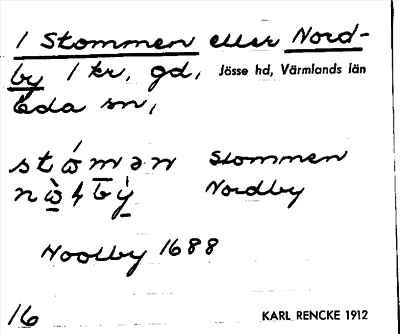 1 Stommen eller Nord-
by 1 kr. gd, Jösse hd, Värmlands län
Eda sn,
Stommen
Nordby
Noolby 1688
16 KARL RENCKE 1912